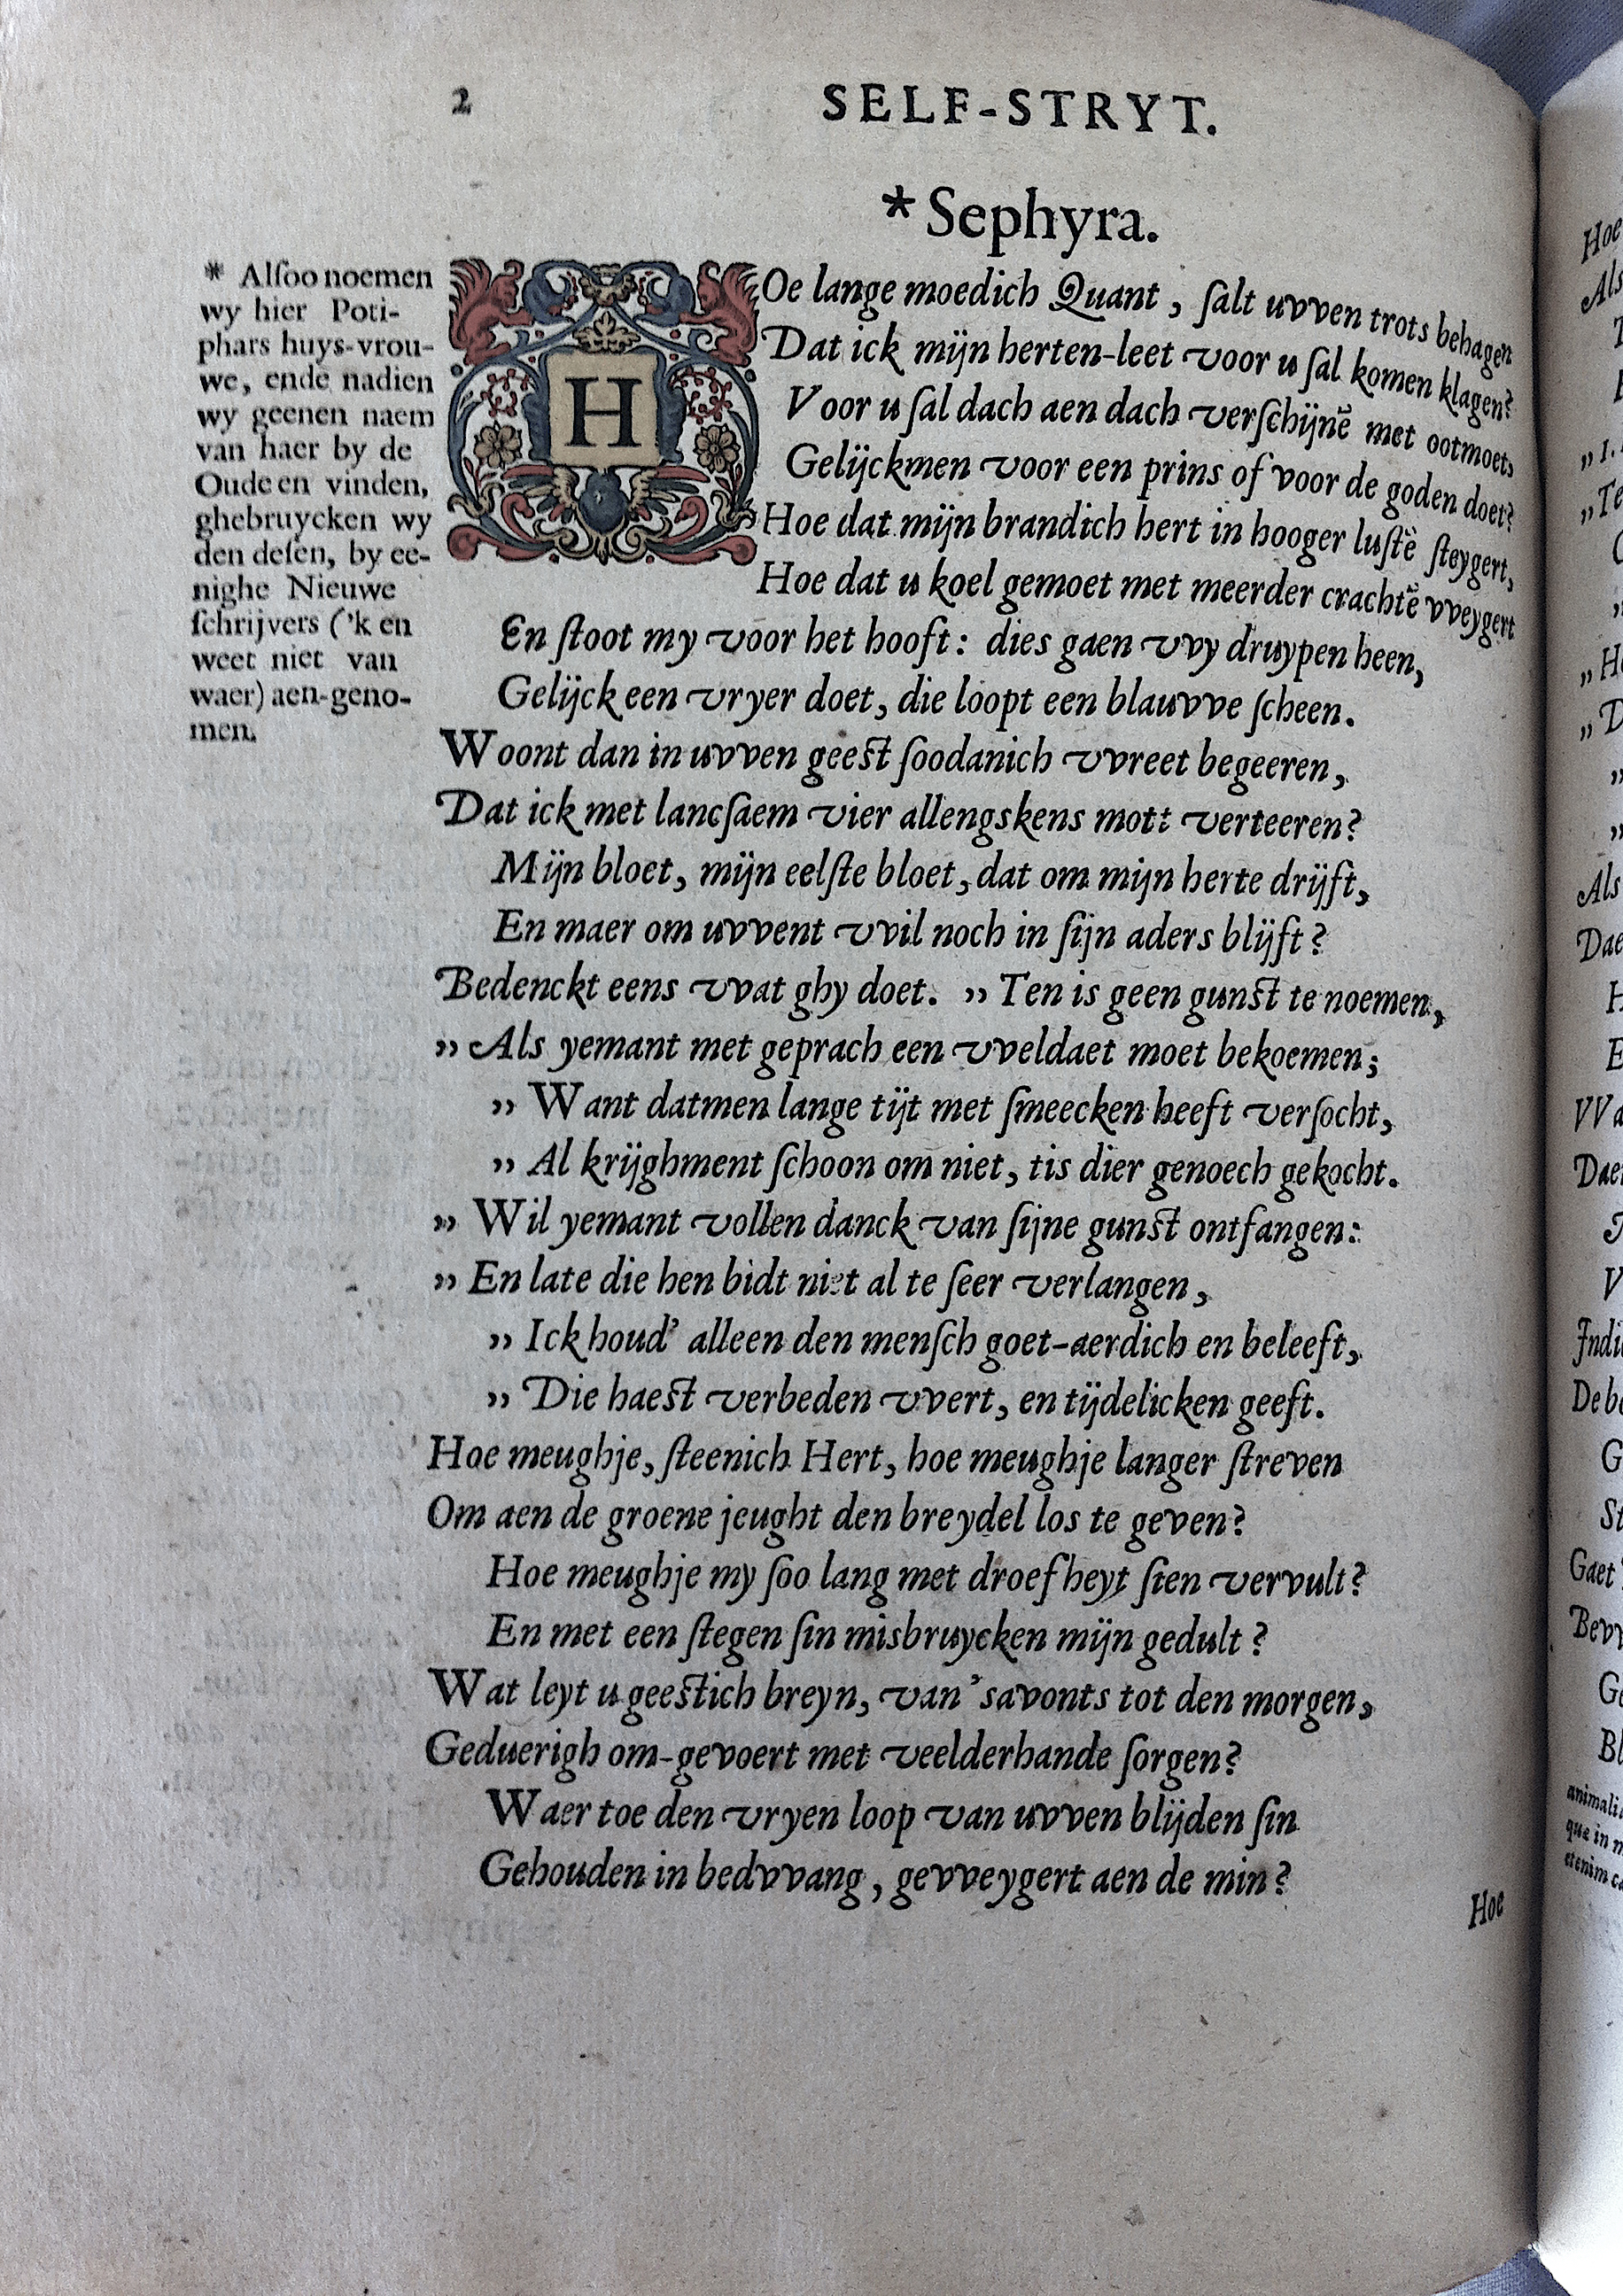 2
SELF-STRYT.
*Sephyra.
* Alſoo noemen
wy hier Poti-
phars huys-vrou-
we, ende nadien
wy geenen naem
van haer by de
Oude en vinden,
ghebruycken wy
den deſen, by ee-
nighe Nieuwe
ſchrijvers ('k en
weet niet van
waer) aen-geno-
men.
HOe lange moedich Quant, ſalt uvven trots behagen
Dat ick mijn herten-leet voor u ſal komen klagen?
Voor u ſal dach aen dach verſchijnē met ootmoet,
Gelijckmen voor een prins of voor de goden doet?
Hoe dat mijn brandich hert in hooger luſtē ſteygert,
Hoe dat u koel gemoet met meerder crachtē vveygert
En ſtoot my voor het hooft: dies gaen vvy druypen heen,
Gelijck een vryer doet, die loopt een blauvve ſcheen.
Woont dan in uvven geeſt ſoodanich vvreet begeeren,
Dat ick met lancſaem vier allengskens mott verteeren?
Mijn bloet, mijn eelſte bloet, dat om mijn herte drijft,
En maer om uvvent vvil noch in ſijn aders blijft?
Bedenckt eens vvat ghy doet. „ Ten is geen gunſt te noemen,
„ Als yemant met geprach een vveldaet moet bekoemen;
„ Want datmen lange tijt met ſmeecken heeft verſocht,
„ Al krijghment ſchoon om niet, tis dier genoech gekocht.
„ Wil yemant vollen danck van ſijne gunſt ontfangen:
„ En late die hen bidt niet al te ſeer verlangen,
„ Ick houd' alleen den menſch goet-aerdich en beleeft,
„ Die haeſt verbeden vvert, en tijdelicken geeft.
Hoe meughje, ſteenich Hert, hoe meughje langer ſtreven
Om aen de groene jeught den breydel los te geven?
Hoe meughje my ſoo lang met droefheyt ſien vervult?
En met een ſtegen ſin misbruycken mijn gedult?
Wat leyt u geeſtich breyn, van 'savonts tot den morgen,
Geduerigh om-gevoert met veelderhande ſorgen?
Waer toe den vryen loop van uvven blijden ſin
Gehouden in bedvvang, gevveygert aen de min?
Hoe
Hoe
Als
„ 1.
„ Te
„ He
„ D
Als
Dae
H
E
VVa
Daer
V
Indi
De be
G
St
Gaet
Bevv
Ge
Bl
animali
quæ in n
etenim ca